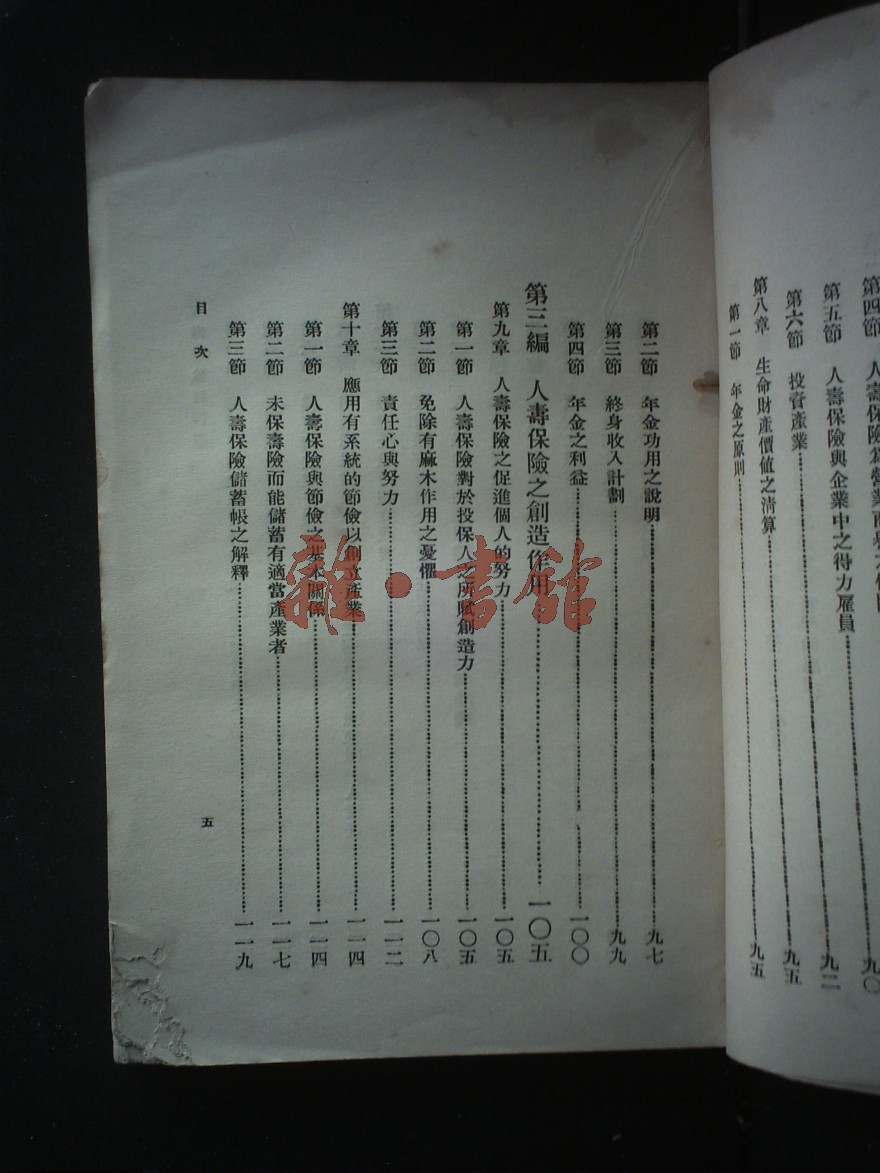 第四節 人壽保險為營業 九〇
第五節 人壽保險與企業中之得力雇員 九二
第六節 投資產業 九五
第八章 生命財產價值之淸算 九五
第一節 年金之原則
第二節 年金功用之說明 九七
第三節 終身收入計劃 九九
第四節 年金之利益 一〇〇
第三編 人壽保險之創造作用 一〇五
第九章 人壽保險之促進個人的努力 一〇五
第一節 人壽保險對於投保人之所賦創造力 一〇五
第二節 免除有麻木作用之憂懼 一〇八
第三節 責任心與努力 一一二
第十章 應用有系統的節儉以創立產業 一一四
第一節 人壽保險與節儉之基本關係 一一四
第二節 未保壽險而能儲蓄有適當產業者 一一七
第三節 人壽保險儲蓄帳之解釋 一一九
目次
五
雜·書館